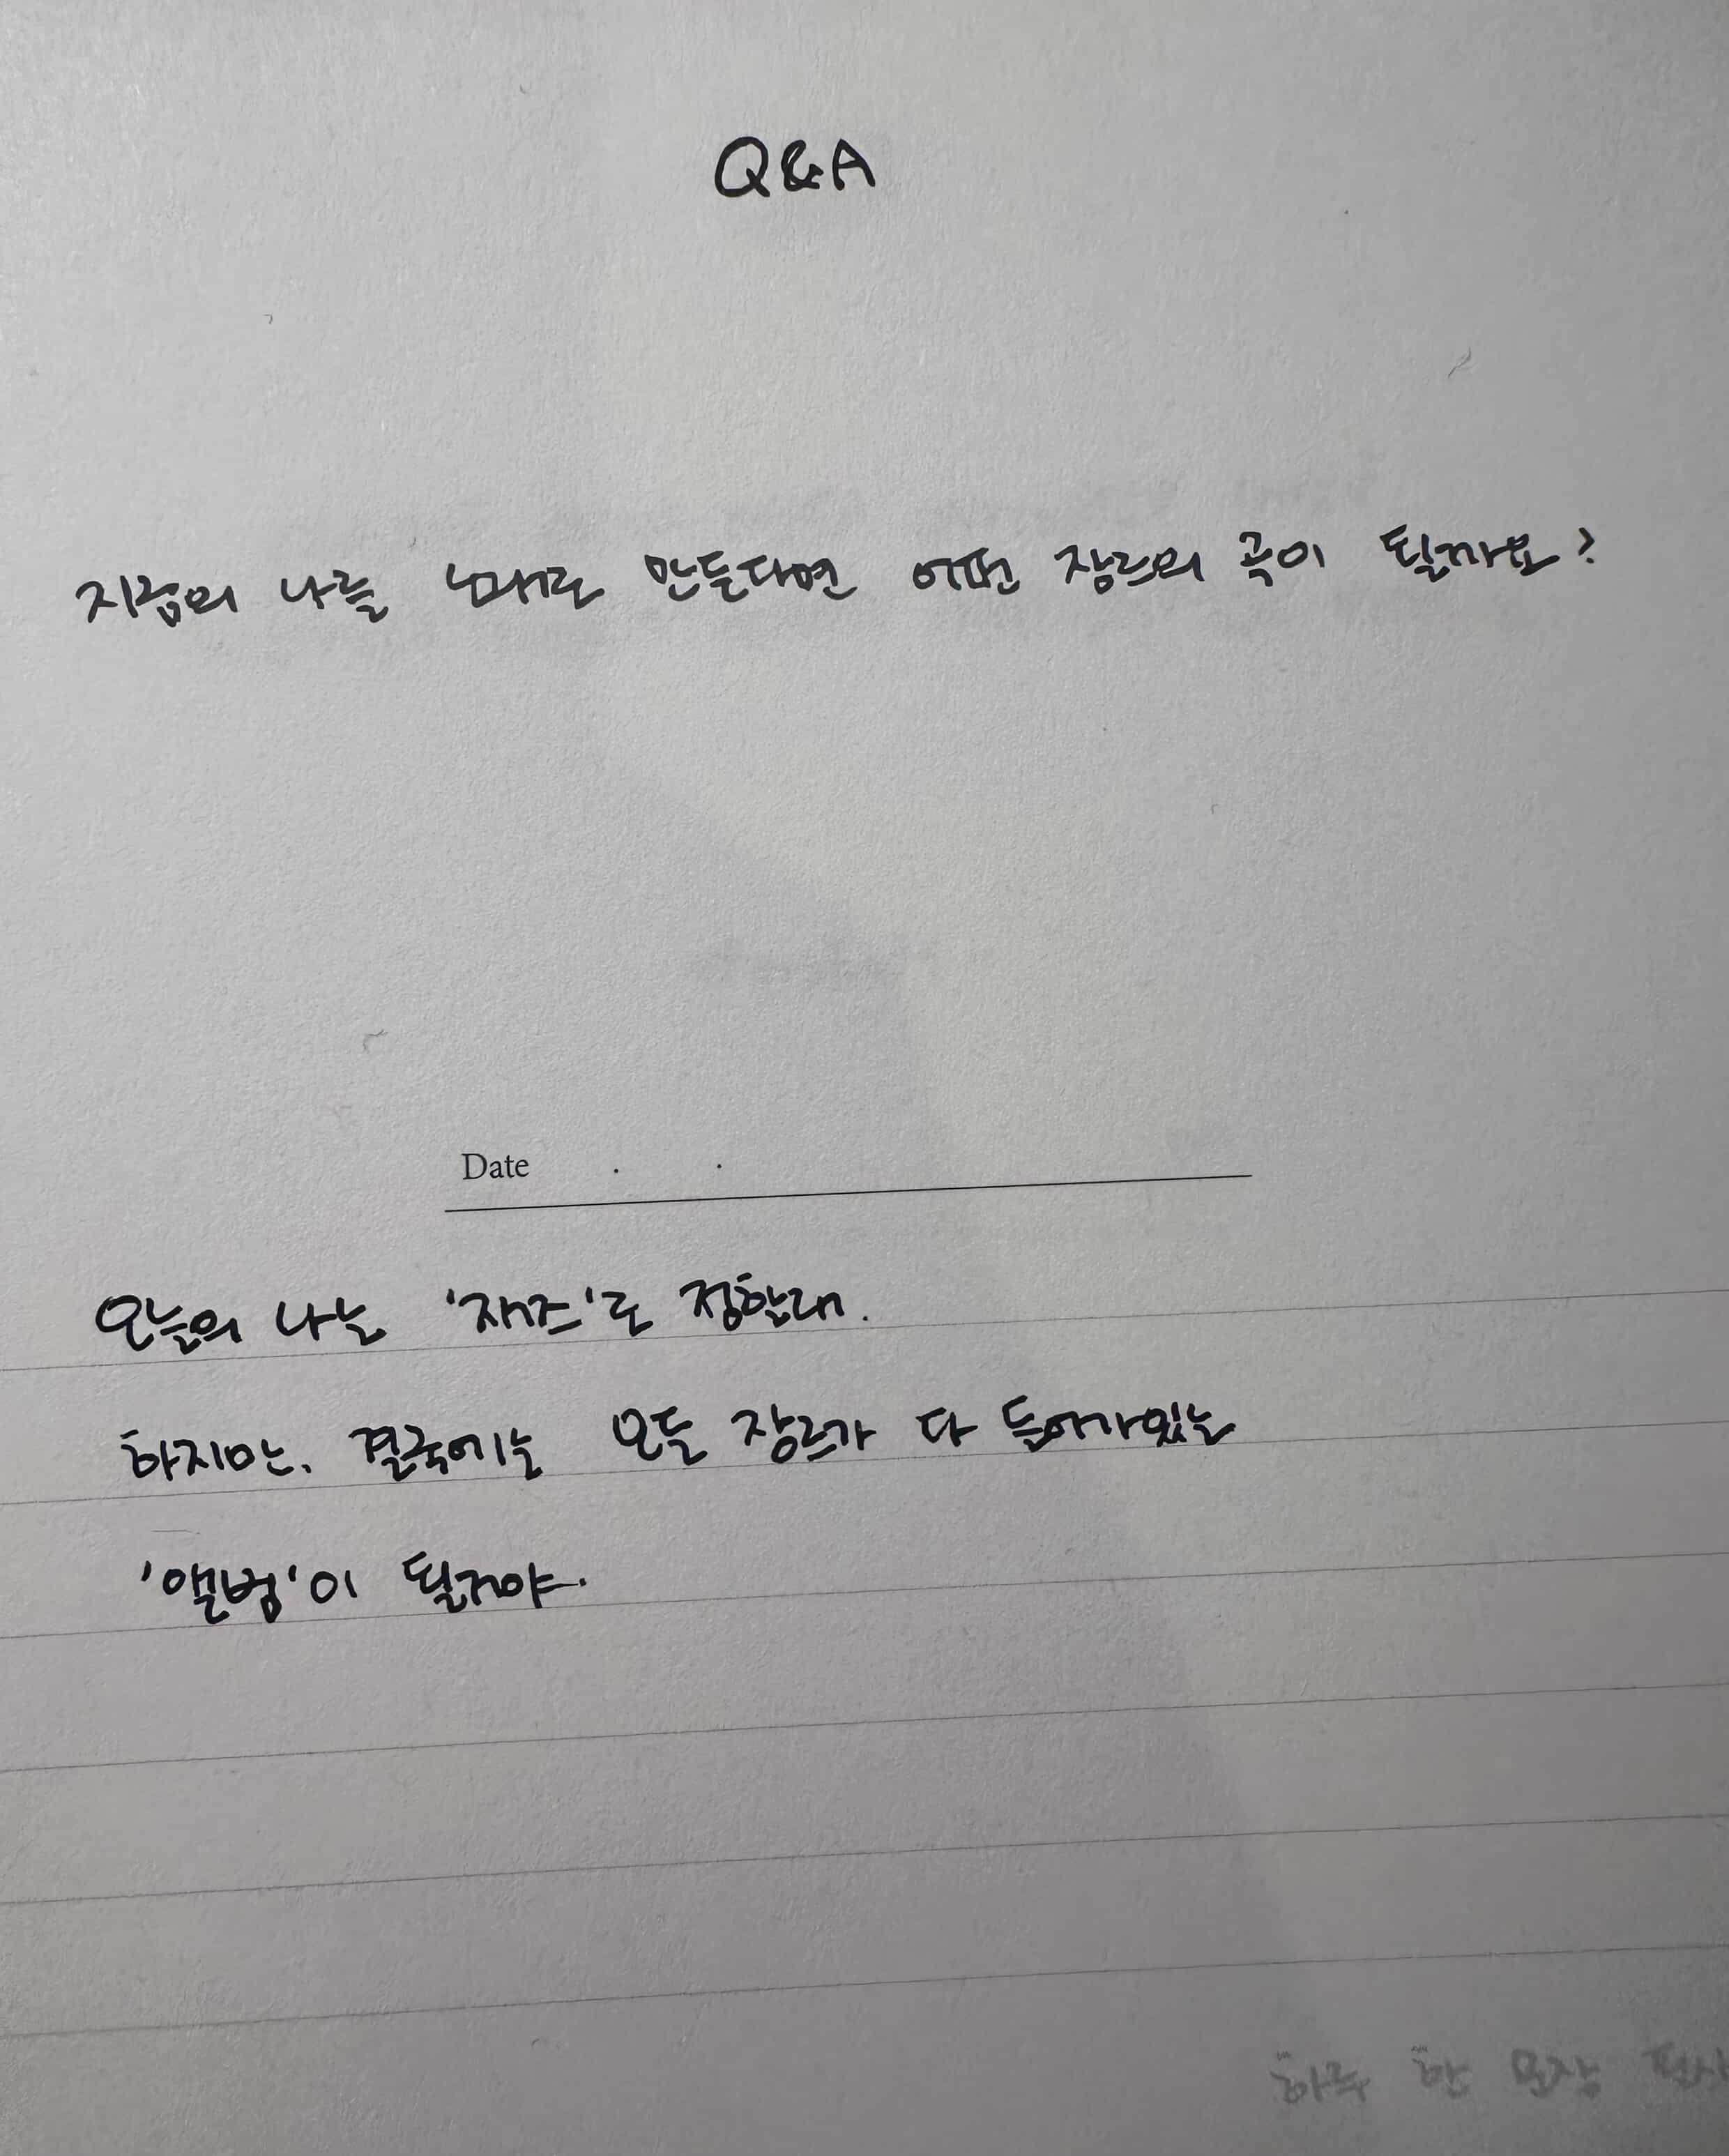 Q&A
지금의 나를 노래로 만든다면 어떤 장르의 곡이 될까요?
Date . .
오늘의 나는 '재즈'로 정할래.
하지만, 결국에는 모든 장르가 다 들어가있는
'앨범'이 될거야.
하루 한 문장 필사